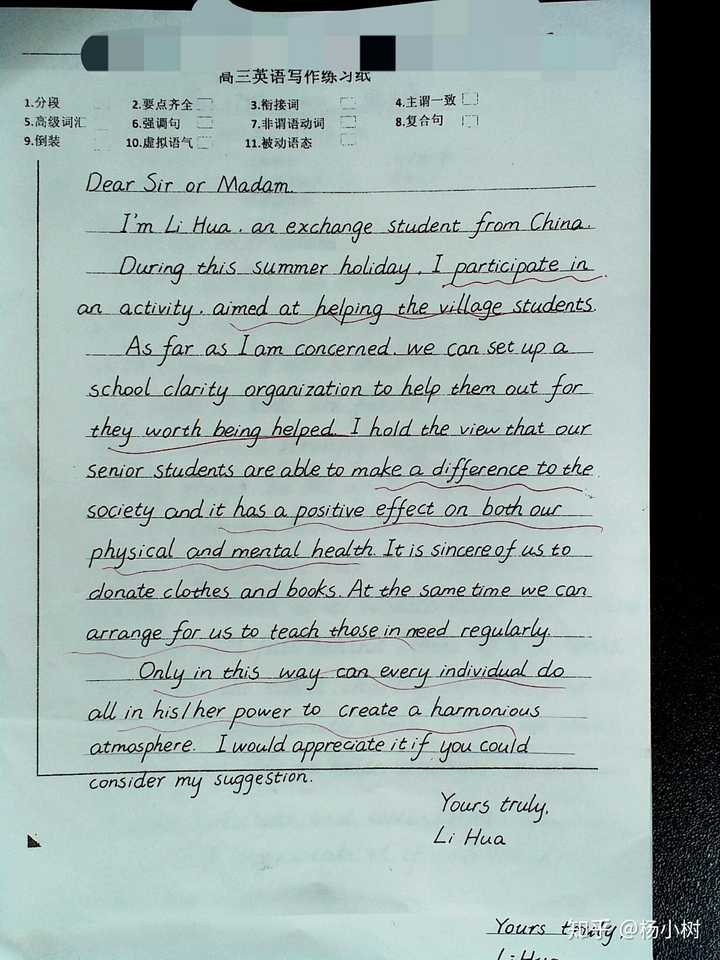 高三英语写作练习纸
1.分段 2.要点齐全 3.衔接词 4.主谓一致
5.高级词汇 6.强调句 7.非谓语动词 8.复合句
9.倒装 10.虚拟语气 11.被动语态
Dear Sir or Madam.
I'm Li Hua, an exchange student from China.
During this summer holiday, I participate in
an activity, aimed at helping the village students.
As far as I am concerned, we can set up a
school clarity organization to help them out for
they worth being helped. I hold the view that our
senior students are able to make a difference to the
society and it has a positive effect on both our
physical and mental health. It is sincere of us to
donate clothes and books. At the same time we can
arrange for us to teach those in need regularly.
Only in this way can every individual do
all in his/her power to create a harmonious
atmosphere. I would appreciate it if you could
consider my suggestion.
Yours truly,
Li Hua
Yours truly,
知乎 @杨小树
Li Hua